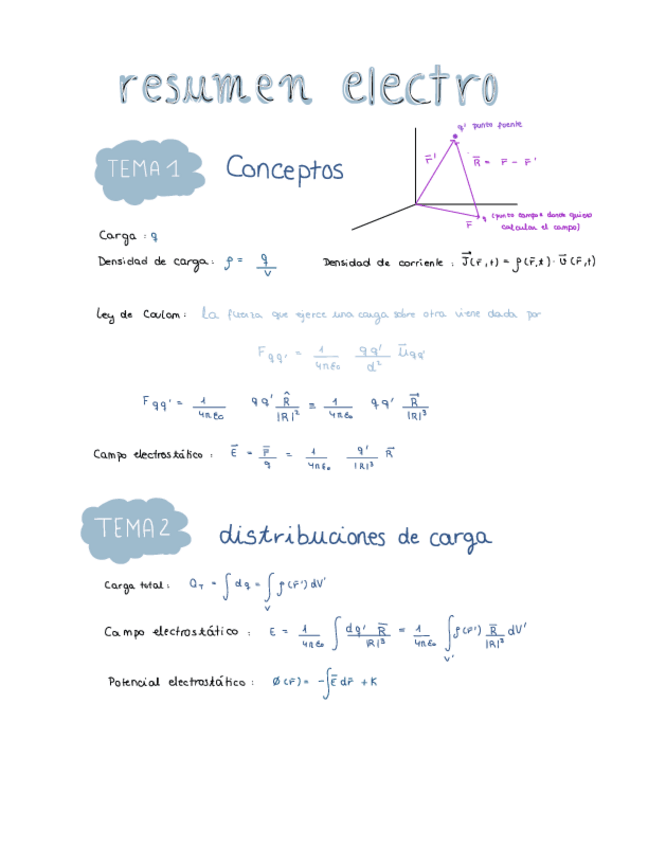 resumen electro
q' punto fuente
r̄' R̄ = r̄ - r̄'
q (punto campo donde quiero
r̄ calcular el campo)
TEMA 1 Conceptos
Carga : q
Densidad de carga: ρ = q/V Densidad de corriente : J⃗(r̄,t) = ρ(r̄,t) · v̄(r̄,t)
Ley de Coulom: La fuerza que ejerce una carga sobre otra viene dada por
F qq' = 1/4πε₀ qq'/d² ū qq'
F qq' = 1/4πε₀ qq' R̂/|R|² = 1/4πε₀ qq' R⃗/|R|³
Campo electrostático : E⃗ = F̄/q = 1/4πε₀ q'/|R|³ R⃗
TEMA 2 distribuciones de carga
Carga total: Q_T = ∫ dq = ∫_V ρ(r̄') dV'
Campo electrostático : E = 1/4πε₀ ∫ dq' R̄/|R|³ = 1/4πε₀ ∫_V' ρ(r̄') R̄/|R|³ dV'
Potencial electrostático : Ø(r̄) = -∫ Ē dr̄ + K